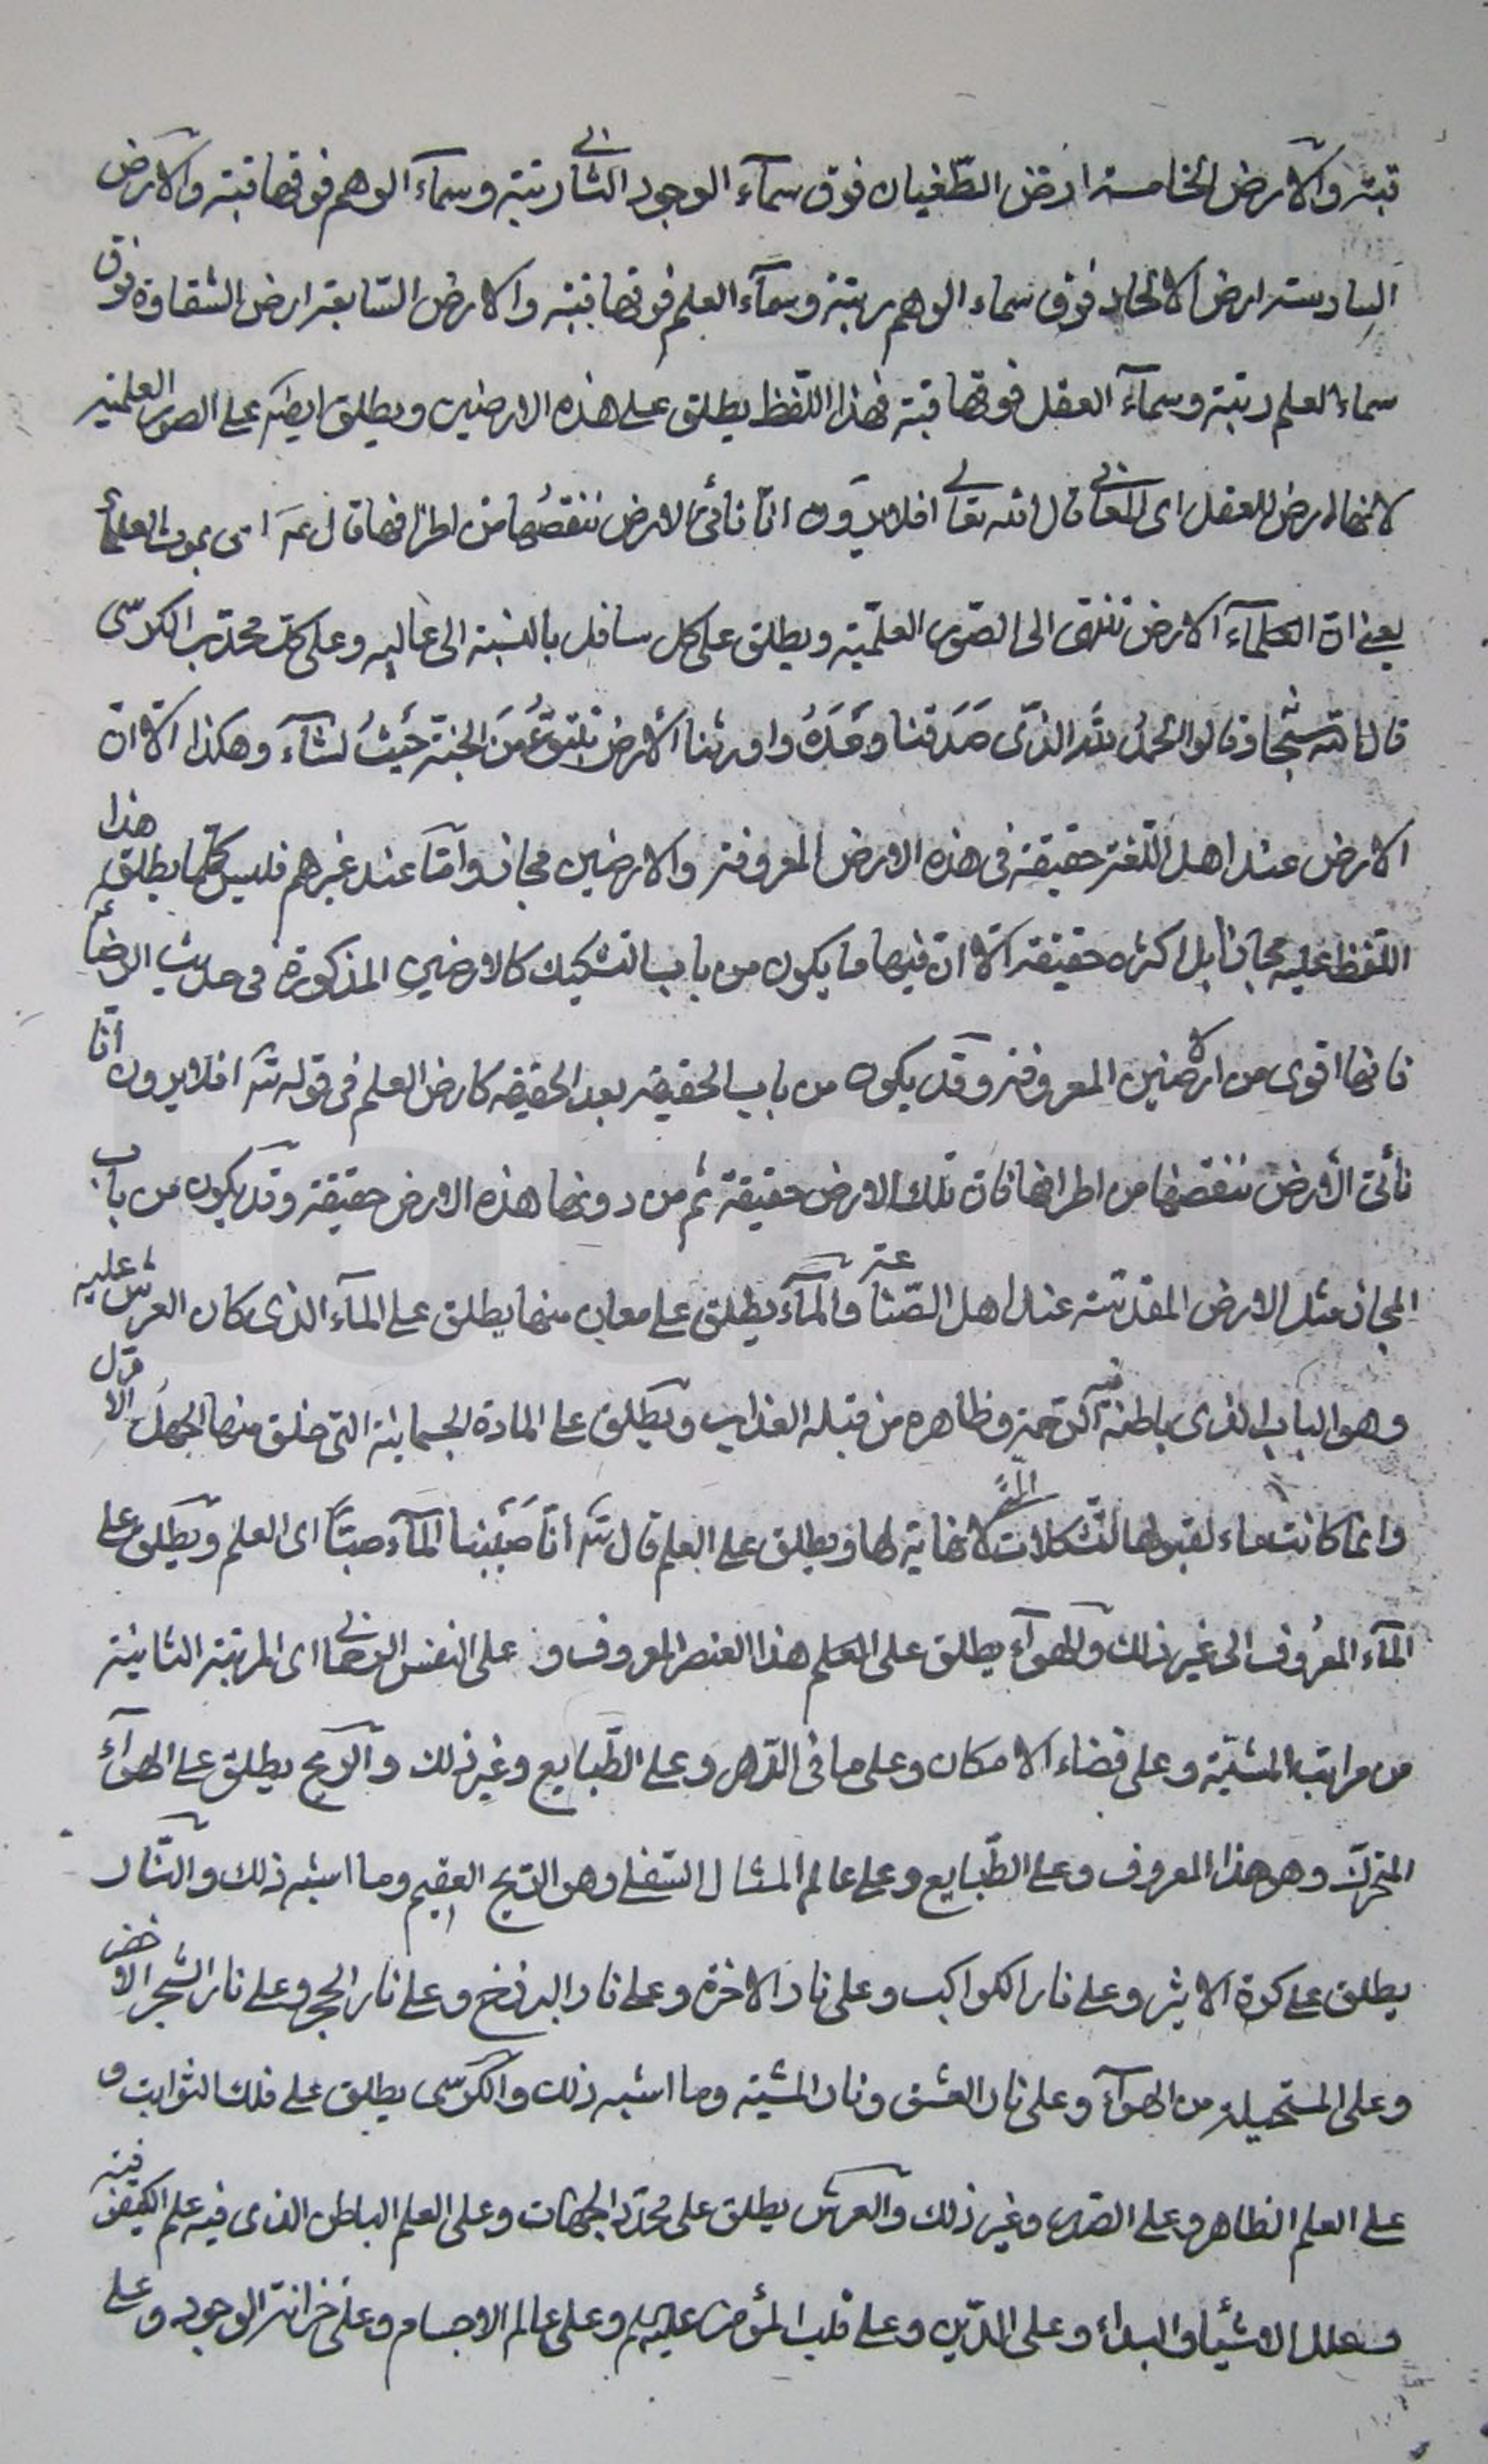 قبته والارض الخامسة ارض الطغيان فوق سمآء الوجود الثانی رتبته وسمآء الوهم فوقها قبته والارض
السادسة ارض الالحاد فوق سماء الوهم رتبته وسمآء العلم فوقها قبته والارض السابعة ارض الشقاوة فوق
سماء العلم رتبته وسمآء العقل فوقها قبته فهذا اللفظ يطلق على هذه الارضين ويطلق ايضا على الصور العلمية
لانها ارض للعقل ای المعانی قال الله تعالى افلا يرون انا نأتی الارض ننقصها من اطرافها قال ع ای بموت العلمآء
يعنی ان العلمآء الارض تنتهی الى الصور العلمية ويطلق على كل سافل بالنسبة الى عاليه وعلى محدب الكرسی
قال الله سبحانه وقالوا الحمد لله الذی صدقنا وعده واورثنا الارض نتبوء من الجنة حيث نشآء وهكذا الا ان
الارض عند اهل اللغة حقيقة فی هذه الارض المعروفة والارضين مجاز واما عند غيرهم فليس كلما يطلق هذا
اللفظ عليه مجازا بل اكثره حقيقة الا ان فيها ما يكون من باب التشكيك كالارضين المذكورة فی حديث الرضا ع
فانها اقوى من الارضين المعروفة وقد يكون من باب الحقيقة بعد الحقيقة كارض العلم فی قوله تع افلا يرون انا
نأتی الأرض ننقصها من اطرافها فان تلك الارض حقيقة ثم من دونها هذه الارض حقيقة وقد يكون من باب
المجاز مثل الارض المقدسة عند اهل الصناعة والمآء يطلق على معان منها يطلق على المآء الذی كان العرش عليه
وهو الباب الذی باطنه فيه الرحمة وظاهره من قبله العذاب ويطلق على المادة الجسمانية التی خلق منها الجهل الاول
وانما كانت ماء لقبولها لتشكلات لا نهاية لها ويطلق على العلم قال تع انا صببنا المآء صبا ای العلم ويطلق على
المآء المعروف الى غير ذلك والهوآء يطلق على هذا العنصر المعروف و على النفس الرحمانی ای المرتبة الثانية
من مراتب المشية وعلى فضاء الامكان وعلى ما فی الدهر وعلى الطبايع وغير ذلك والريح يطلق على الهوآء
المتحرك وهو هذا المعروف وعلى الطبايع وعلى عالم المثال السفلی وهی الريح العقيم وما اشبه ذلك والنار
يطلق على كرة الاثير وعلى نار الكواكب وعلى نار الاخرة وعلى نار البرزخ وعلى نار الحجر وعلى نار الشجر الاخضر
وعلى المستحيلة من الهوآء وعلى نار العشق ونار المشية وما اشبه ذلك والكرسی يطلق على فلك الثوابت و
على العلم الظاهر وعلى الصدر وغير ذلك والعرش يطلق على محدد الجهات وعلى العلم الباطن الذی فيه علم الكيفوفية
وعلل الاشيآء والبدآء وعلى الدين وعلى قلب المؤمن عليه وعلى عالم الاجسام وعلى خزانة الوجود وعلى